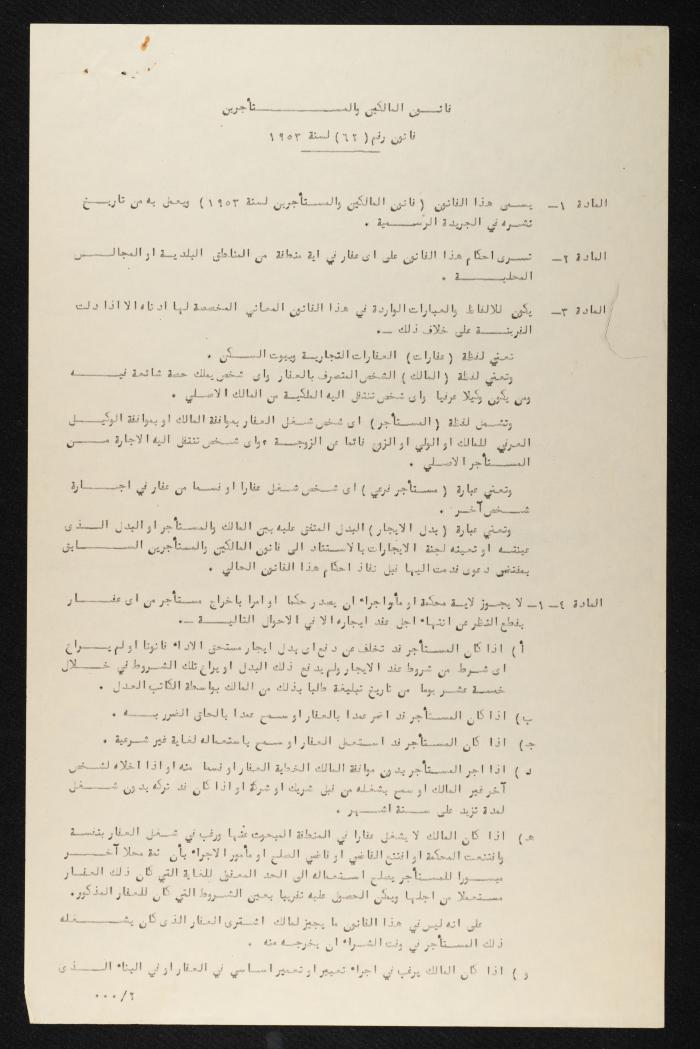 قانون المالكين والمستأجرين
قانون رقم (٦٢) لسنة ١٩٥٣
المادة ١- يسمى هذا القانون (قانون المالكين والمستأجرين لسنة ١٩٥٣) ويعمل به من تاريخ
نشره في الجريدة الرسمية .
المادة ٢- تسرى احكام هذا القانون على اى عقار في اية منطقة من المناطق البلدية او المجالس
المحلية .
المادة ٣- يكون للالفاظ والعبارات الواردة في هذا القانون المعاني المخصصة لها ادناه الا اذا دلت
القرينة على خلاف ذلك -.
تعني لفظة (عقارات) العقارات التجارية وبيوت السكن .
وتعني لفظة (المالك) الشخص المتصرف بالعقار واى شخص يملك حصة شائعة فيه
ومن يكون وكيلا عرفيا واى شخص تنتقل اليه الملكية من المالك الاصلي .
وتشمل لفظة (المستأجر) اى شخص شغل العقار بموافقة المالك او بموافقة الوكيل
العرفي للمالك او الولي او الزوج قائما عن الزوجة ،واى شخص تنتقل اليه الاجارة من
المستأجر الاصلي .
وتعني عبارة (مستأجر فرعي) اى شخص شغل عقارا او قسما من عقار في اجارة
شخص آخر .
وتعني عبارة (بدل الايجار) البدل المتفق عليه بين المالك والمستأجر او البدل الذى
عينته او تعينه لجنة الايجارات بالاستناد الى قانون المالكين والمستأجرين السابق
بمقتضى دعوى قدمت اليها قبل نفاذ احكام هذا القانون الحالي .
المادة ٤- ١- لا يجوز لاية محكمة او مأمور اجراء ان يصدر حكما او امرا باخراج مستأجر من اى عقار
بقطع النظر عن انتهاء اجل عقد ايجاره الا في الاحوال التالية -.
أ) اذا كان المستأجر قد تخلف عن دفع اى بدل ايجار مستحق الاداء قانونا او لم يراع
اى شرط من شروط عقد الايجار ولم يدفع ذلك البدل او يراع تلك الشروط في خلال
خمسة عشر يوما من تاريخ تبليغة طلبا بذلك من المالك بواسطة الكاتب العدل .
ب) اذا كان المستأجر قد اضر عمدا بالعقار او سمح عمدا بالحاق الضرر به .
ج) اذا كان المستأجر قد استعمل العقار او سمح باستعماله لغاية غير شرعية .
د) اذا اجر المستأجر بدون موافقة المالك الخطية العقار او قسما منه او اذا اخلاه لشخص
آخر غير المالك او سمح بشغله من قبل شريك او شركة او اذا كان قد تركه بدون شغل
لمدة تزيد على ستة اشهر .
هـ) اذا كان المالك لا يشغل عقارا في المنطقة المبحوث عنها ورغب في شغل العقار بنفسة
واقتنعت المحكمة او اقتنع القاضي او قاضي الصلح او مأمور الاجراء بأن ثمة محلا آخر
ميسورا للمستأجر يصلح استعماله الى الحد المعقول للغاية التي كان ذلك العقار
مستعملا من اجلها ويمكن الحصول عليه تقريبا بعين الشروط التي كان للعقار المذكور.
على انه ليس في هذا القانون ما يجيز لمالك اشترى العقار الذى كان يشغله
ذلك المستأجر في وقت الشراء ان يخرجه منه .
و) اذا كان المالك يرغب في اجراء تغيير او تعمير اساسي في العقار او في البناء الذى
٢/٠٠٠